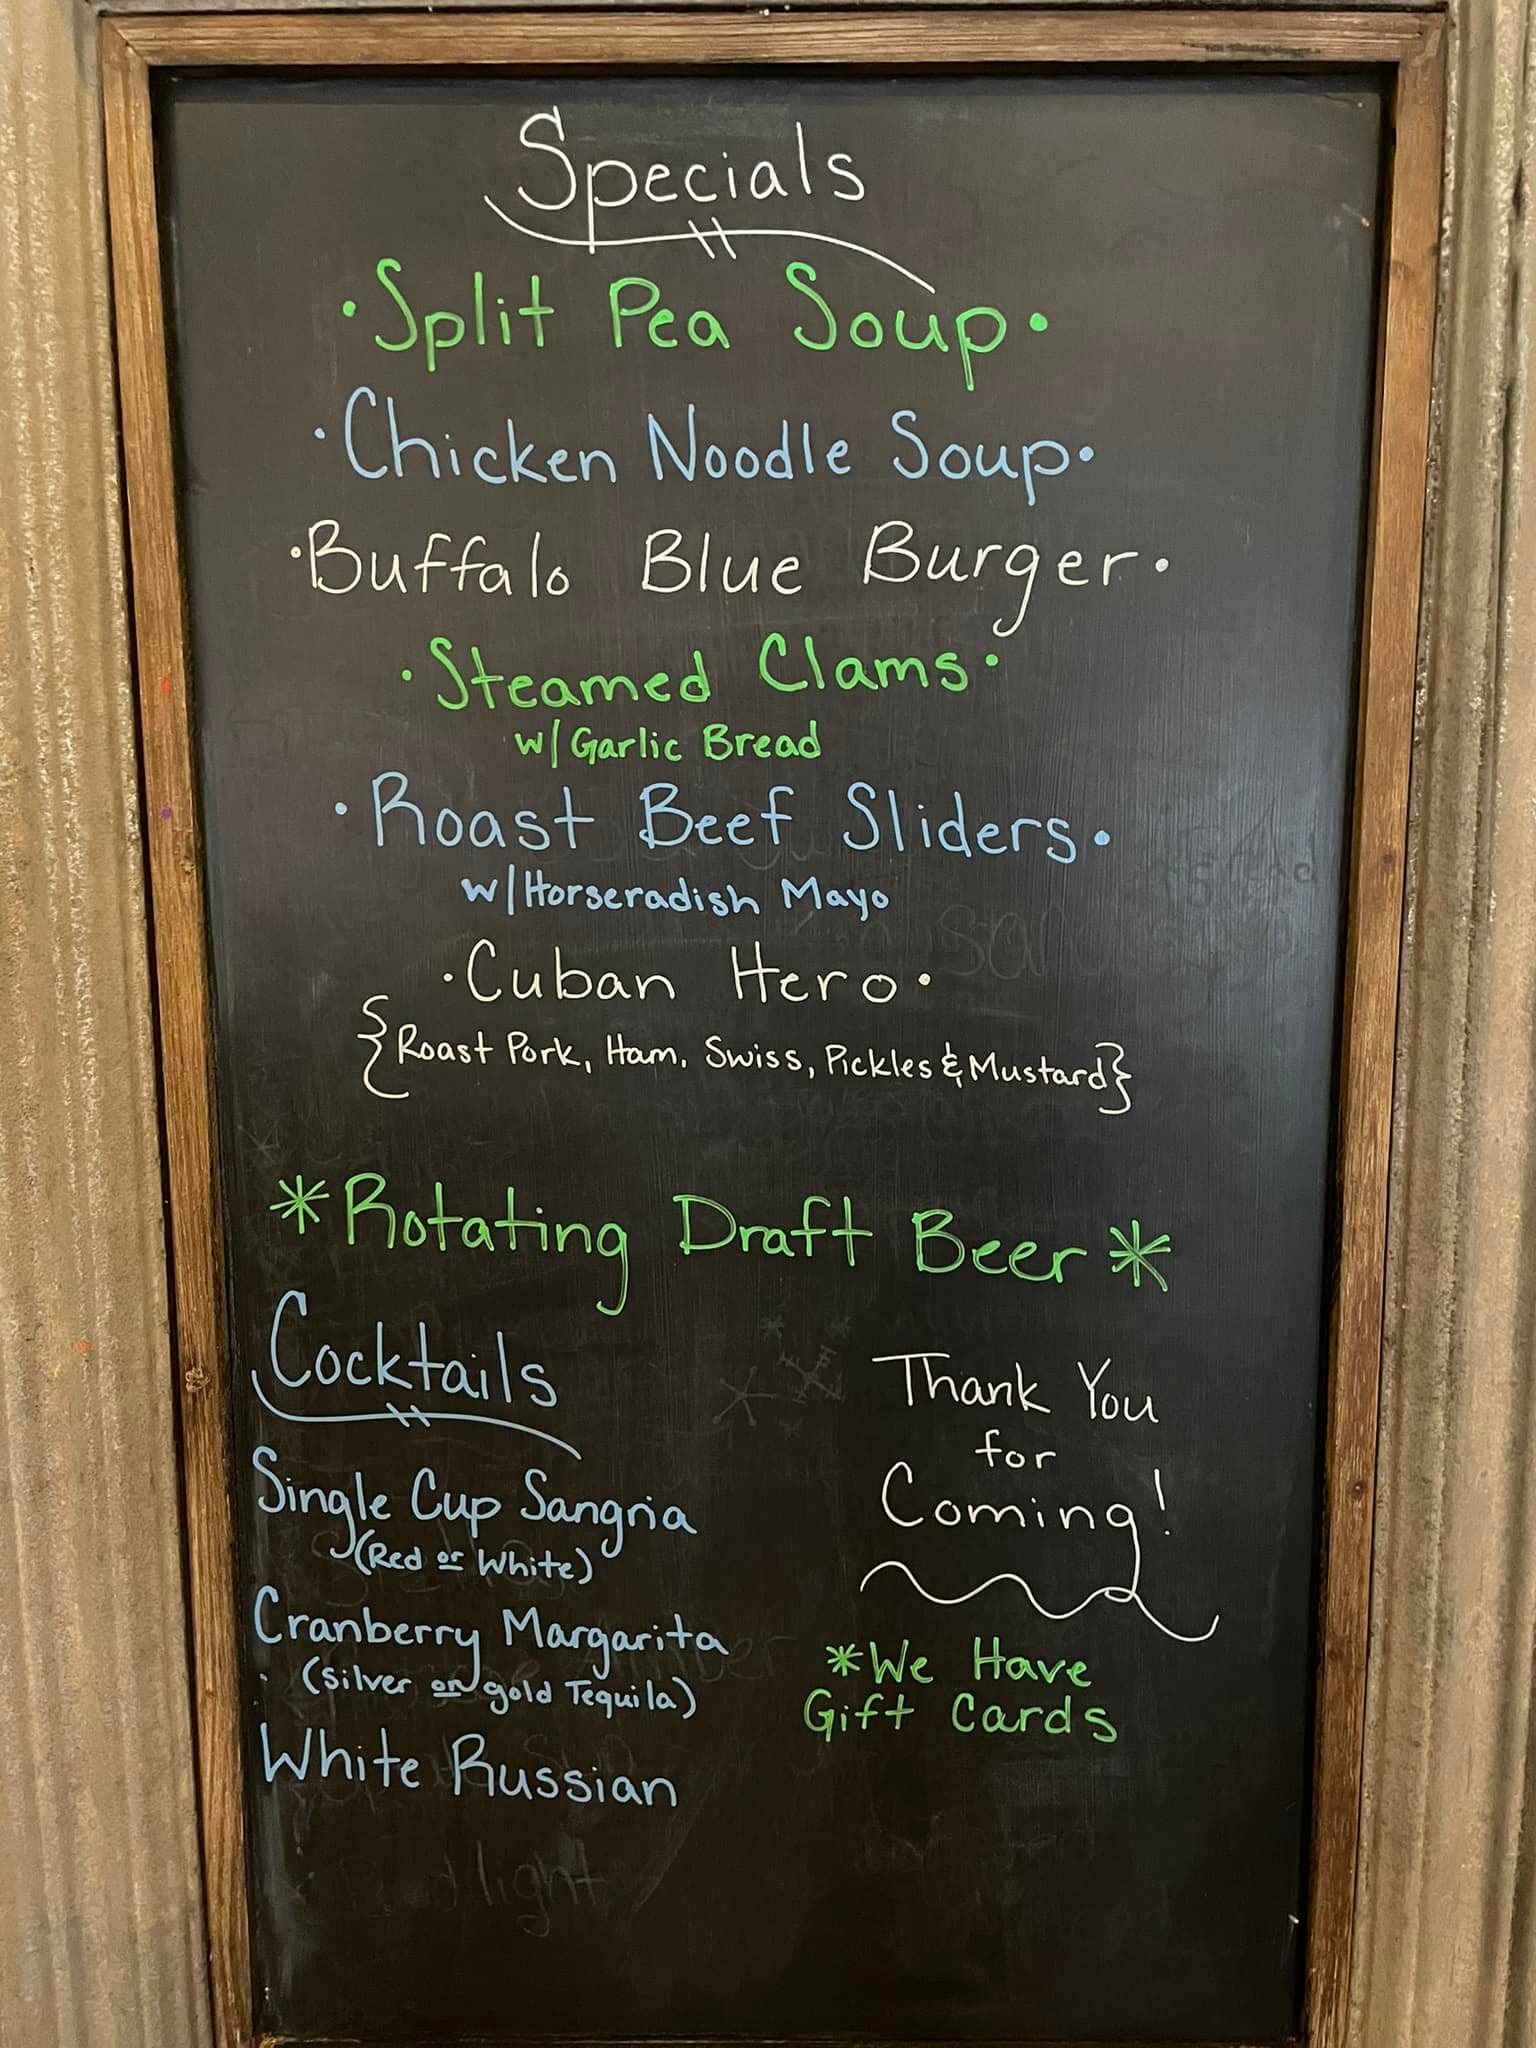 Specials
·Split Pea Soup·
·Chicken Noodle Soup·
·Buffalo Blue Burger·
·Steamed Clams·
w/Garlic Bread
·Roast Beef Sliders·
w/Horseradish Mayo
·Cuban Hero·
{Roast Pork, Ham, Swiss, Pickles & Mustard}
*Rotating Draft Beer*
Cocktails
Single Cup Sangria
(Red or White)
Cranberry Margarita
(Silver or gold Tequila)
White Russian
Thank You
for
Coming!
*We Have
Gift Cards